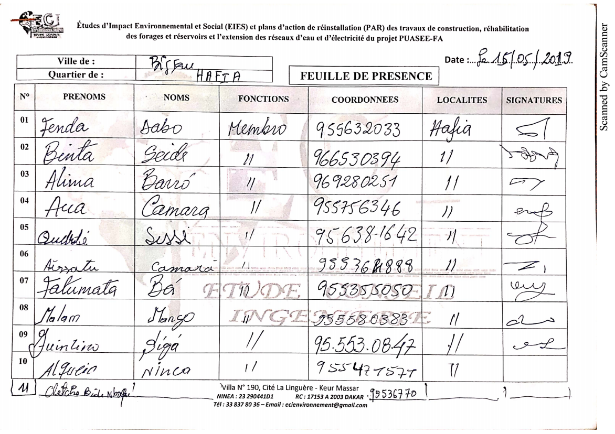 Études d'Impact Environnemental et Social (EIES) et plans d'action de réinstallation (PAR) des travaux de construction, réhabilitation
des forages et réservoirs et l'extension des réseaux d'eau et d'électricité du projet PUASEE-FA
Ville de : Bissau Date :...le 15/05/2019
Quartier de : HAFIA FEUILLE DE PRESENCE
N° PRENOMS NOMS FONCTIONS COORDONNEES LOCALITES SIGNATURES
01 Fenda Sabo Membro 955632033 Hafia
02 Binta Seide 11 966530394 11
03 Alima Barró 11 969280251 11
04 Aua Camara 11 955756346 11
05 Sissé 11 95638-1642 11
06 Aissatu Camará 11 11
07 Fatumata Bá 11 955355050 11
08 Malam Mango 11 955580383 11
09 Quintino Sigá 11 95.553.08.47 11
10 Ninca 11 955471571 11
11 95536770
ETUDE
INGENIERIE
Villa N° 190, Cité La Linguère - Keur Massar
NINEA : 23 29044101 RC : 17153 A 2003 DAKAR
Tél : 33 837 80 36 – Email : ecienvironnement@gmail.com
Scanned by CamScanner